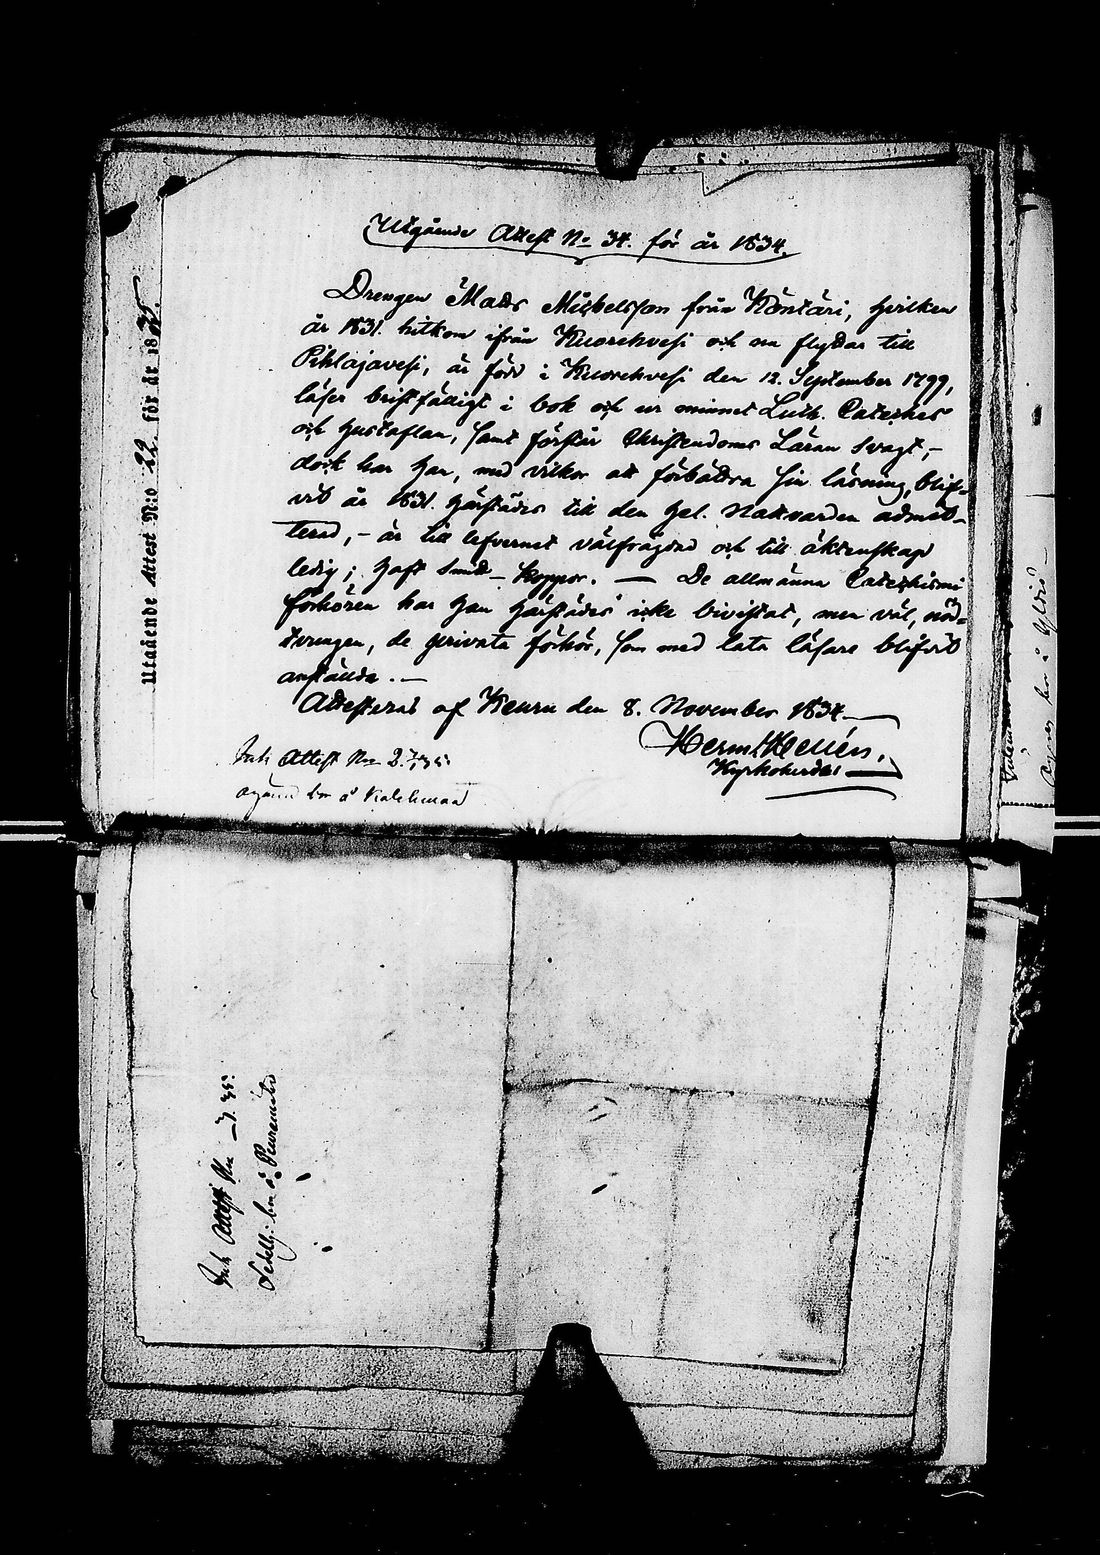 Utgående Attest No 34. för år 1834.
Drengen Matts Michelsson från Köntäri, hvilken
år 1831. hitkom ifrån Kuorehvesi och nu flyttar till
Pihlajavesi, är född i Kuorehvesi den 12. September 1799,
läser bristfädigt i bok och ur minnet Luth. Cateches
och Hustaflan, samt förstår Christendoms Läran svagt, –
dock har han, med vilkor att förbättra sin läsning, blif-
vit år 1831. härstädes till den Hel. Nattvarden admit-
terad, – är till lefvernet välfrägdad och till äktenskap
ledig; haft Smitt-koppor. — De allmänna Catechismi
förhören har han härstädes icke bivistat, men väl, nöd-
tvungen, de privata förhör, som med lata läsare blifvit
anställda. –
Attesteras af Keuru den 8. November 1834.
Herm. Hellén,
Kyrkoherde.
Ink Attest No 2. 35.
bor å
Utgående Attest N:o 22 för år 1835.
Ink Attest No 35.
bor å
bor å